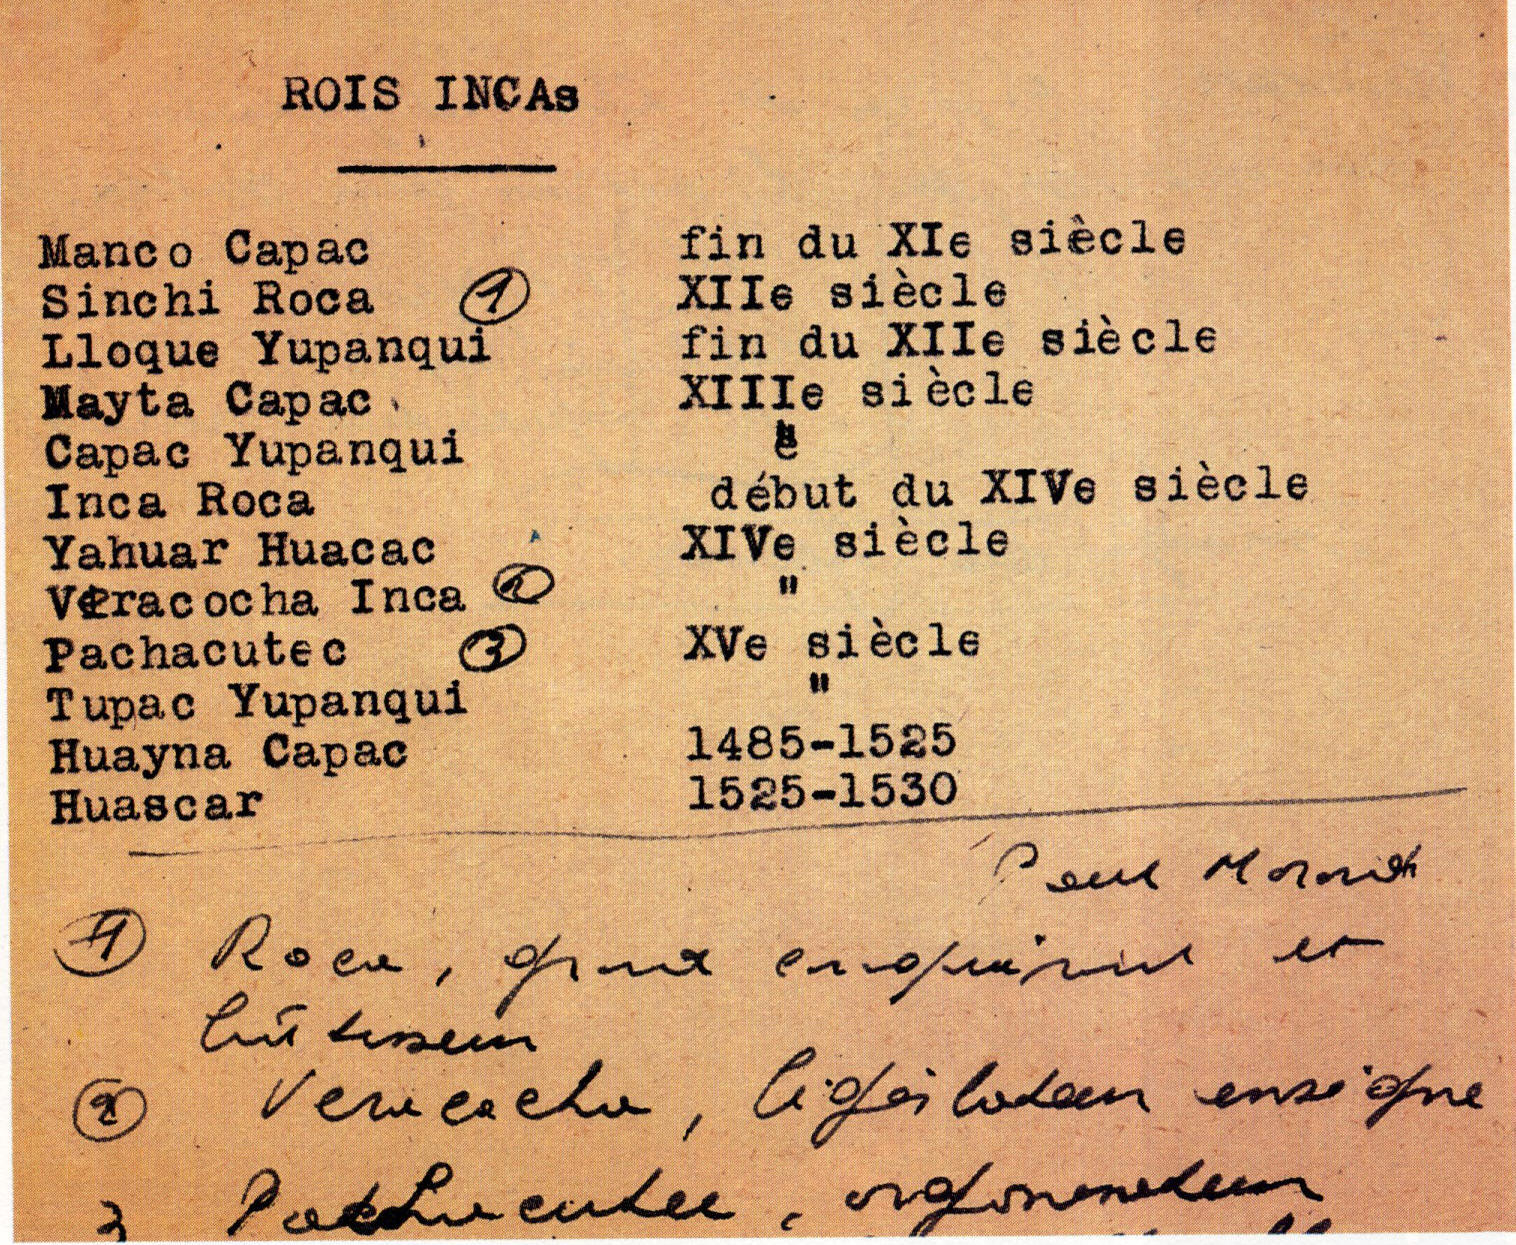 ROIS INCAs
Manco Capac fin du XIe siècle
Sinchi Roca ① XIIe siècle
Lloque Yupanqui fin du XIIe siècle
Mayta Capac XIIIe siècle
Capac Yupanqui "
Inca Roca début du XIVe siècle
Yahuar Huacac XIVe siècle
Veracocha Inca ② "
Pachacutec ③ XVe siècle
Tupac Yupanqui "
Huayna Capac 1485-1525
Huascar 1525-1530
Paul Morand
① Roca, grand conquérant et
bâtisseur
② Veracocha, législateur insigne
3 Pachacutec, organisateur